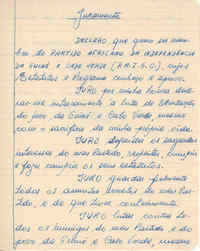 Juramento
DECLARO que quero ser mem-
bro do PARTIDO AFRICANO DA INDEPENDÊNCIA
DA GUINÉ E CABO VERDE (P.A.I.G.C.), cujos
Estatutos e Programa conheço e aprovo.
JURO por minha honra
inteiramente à luta de libertação
do povo da Guiné e Cabo Verde, mesmo
com o sacrifício da minha própria vida.
JURO defender os sagrados
interesses do meu Partido, respeitar, cumprir
e fazer cumprir os seus estatutos.
JURO guardar fielmente
todos os assuntos secretos do meu Par-
tido, e do que tiver conhecimento.
JURO lutar contra to-
dos os inimigos do meu Partido e do
povo da Guiné e Cabo Verde, mesmo